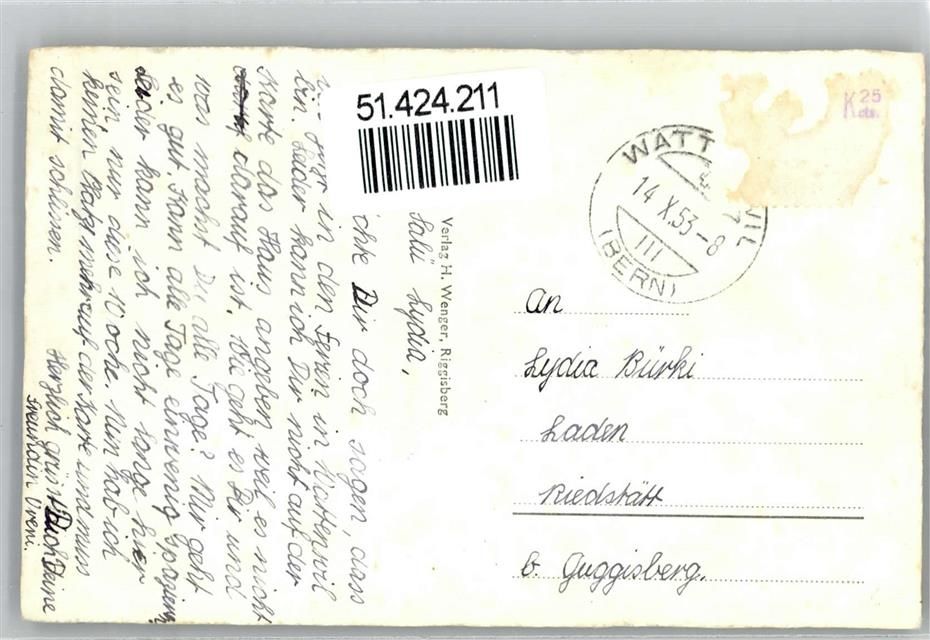 51.424.211
K 25
cts.
WATTENWIL
14.X.53-8
(BERN)
Verlag H. Wenger, Riggisberg
Salü Lydia,
ohte Dir doch sagen, dass
in den Ferien in Wattenwil
bin. Leider kann ich Dir nicht auf der
Karte das Haus angeben weil es nicht
darauf ist. Wie geht es Dir und
was machst Du alle Tage? Mir geht
es gut. Kann alle Tage einwenig spazieren
Leider kann ich nicht lange hier
sein nur diese Woche. Nun hab ich
keinen Platz mehr auf der Karte und muss
damit schliessen.
Herzlich grüsst Dich Deine
Freundin Vreni.
An
Lydia Bürki
Laden
Riedstätt
b. Guggisberg.